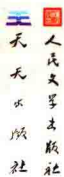 人民文学出版社
天天出版社